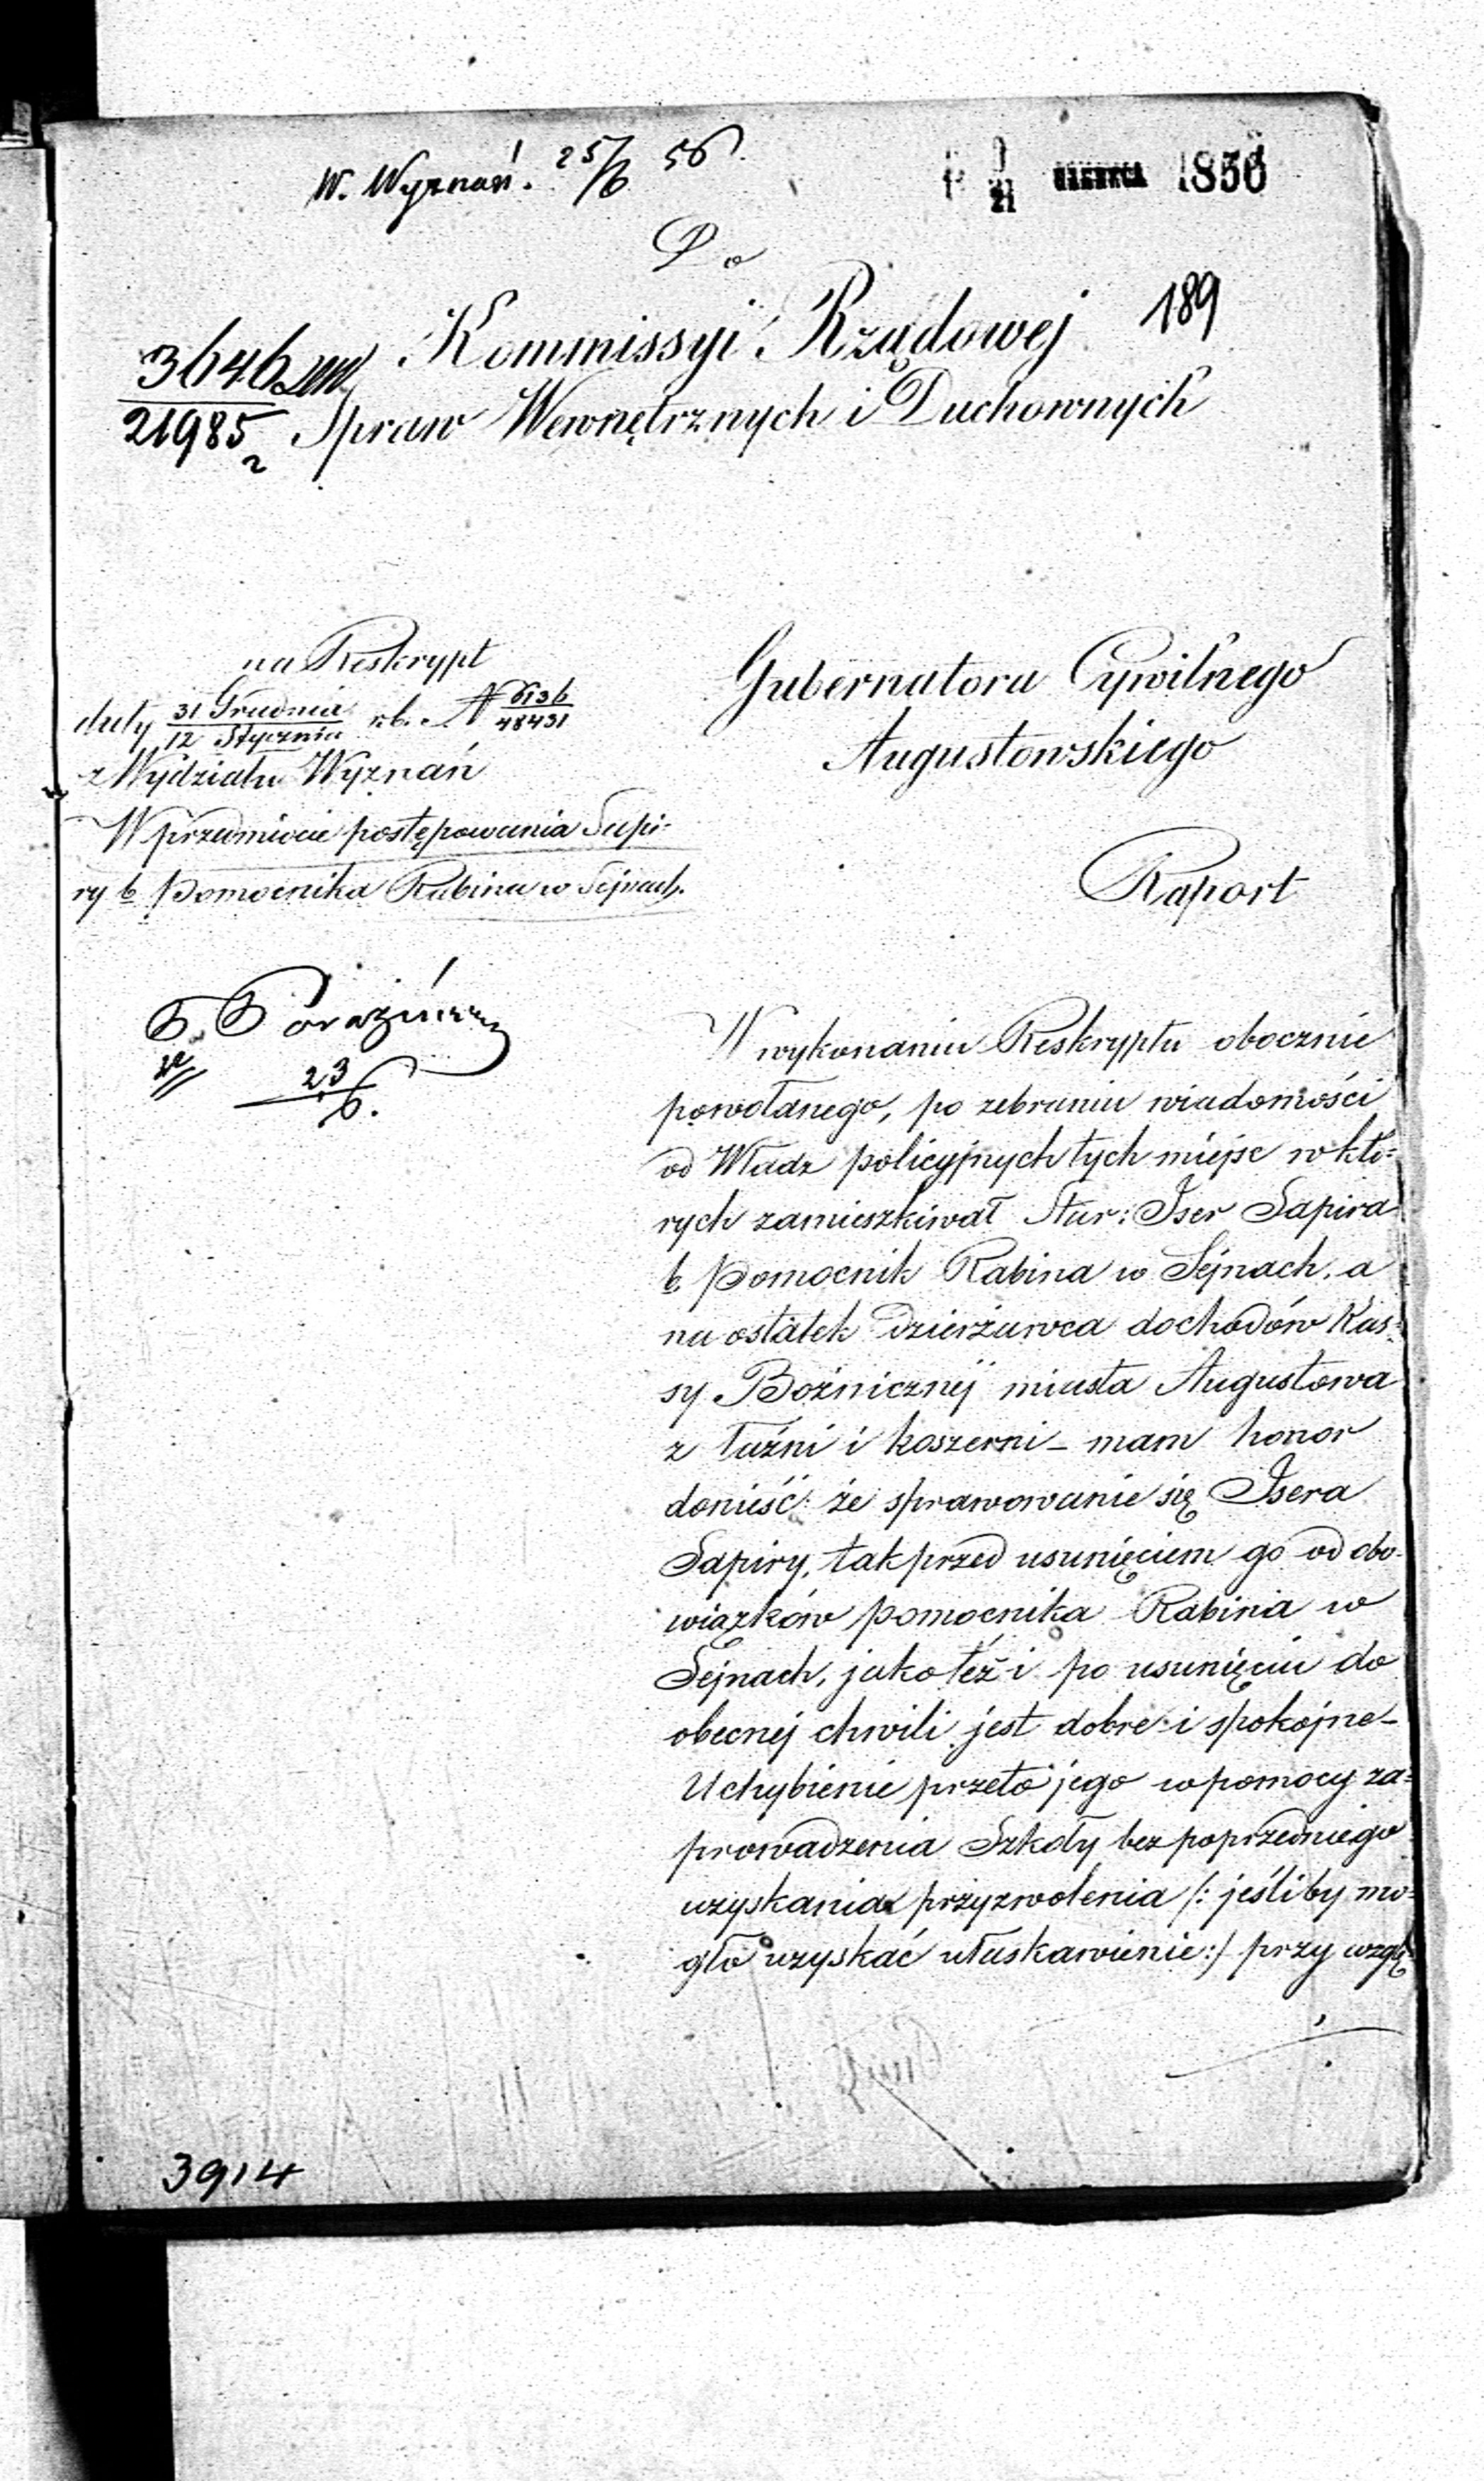 W. Wyznań. 25/6 56
9/21 CZERWCA 1856
Do
189
Kommissyi Rządowej
3646
21985
Spraw Wewnętrznych i Duchownych
na Reskrypt
daty 31 Grudnia/12 Stycznia rb. N 6136/48431
z Wydziału Wyznań
W przedmiocie postępowania Sapi-
ry b. Pomocnika Rabina w Sejnach.
Gubernatora Cywilnego
Augustowskiego
Raport
23/6.
W wykonaniu Reskryptu obocznie
powołanego, po zebraniu wiadomości
od Władz policyjnych tych miejsc w któ=
rych zamieszkiwał Star: Iser Sapira
b. Pomocnik Rabina w Sejnach, a
na ostatek dzierżawca dochodów Kas=
sy Bożnicznej miasta Augustowa
z łaźni i koszerni – mam honor
donieść: że sprawowanie się Isera
Sapiry, tak przed usunięciem go od obo-
wiązków pomocnika Rabina w
Sejnach, jako też i po usunięciu do
obecnej chwili jest dobre i spokojne –
Uchybienie przeto jego w pomocy za=
prowadzenia Szkoły bez poprzedniego
uzyskania przyzwolenia /: jeśliby mo=
gło uzyskać ułaskawienie :/ przy wzglę
3914